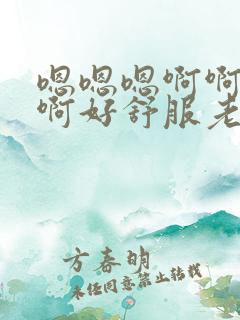 嗯嗯嗯啊啊
啊好舒服老
方春明
未经同意禁止转载